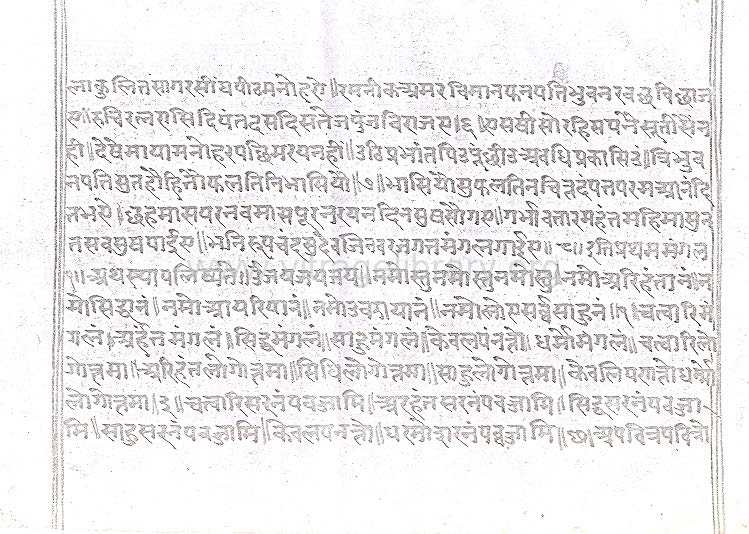 लाकुलितसागरसींघपीठमनोहरए॥रमनीकअमरविमानफनपतिभुवनरवछविछाज
ए॥रुचिरत्नरासिदिपंतदसदिसतेजपुंजविराजए॥६॥एसषीसोरहिसपनैसूतीसैन
ही॥देषेमायामनोहरपछिमरयनही॥उठिप्रभांतपिउपुंछीउअवधिप्रकासिउं॥त्रिभुव
नपतिसुतहौहिनौफलतिनिभासियौ॥७॥भासियौसुफलतिनचित्तदंपतपरमआनंदि
तभए॥छहमासपरनवमासपूरनुरयनदिनसुषसौगए॥गर्भावतारमहंतमहिमासुन
तसवसुषपाईए॥भनिरूपचंदसुदेवजिनवरजगतमंगलगाईए॥८॥इतिप्रथममंगल
१॥अथस्थापनलिष्यते॥उंजयजयजय॥नमोस्तुनमोस्तुनमोस्तु॥नमोअरिहंतानं॥न
मोसिद्धानं॥नमोआयरियानं॥नमोउवझायानं॥नमोलोएसर्व्वसाहुनं॥१॥चत्वारिमं
गलं॥अर्हंतमंगलं॥सिद्धमंगलं॥साहुमंगलं॥केवलपंनत्तो॥धर्मोमंगलं॥चत्वारिलो
गोत्तमा॥अरिहंतलोगोत्तमा॥सिधिलोगोत्तमा॥साहुलोगोत्तमा॥केवलिपरातोधर्म्मो
लोगोत्तमा॥३॥चत्वारिसरनंपवज्जामि॥अरहंतसरनंपवज्जामि॥सिद्धसरनंपवज्जा
मि॥साहुसरनंपवज्जामि॥केवलपनत्तो॥धरमोसरनंपवज्जामि॥छ॥अपवित्रपवित्रो